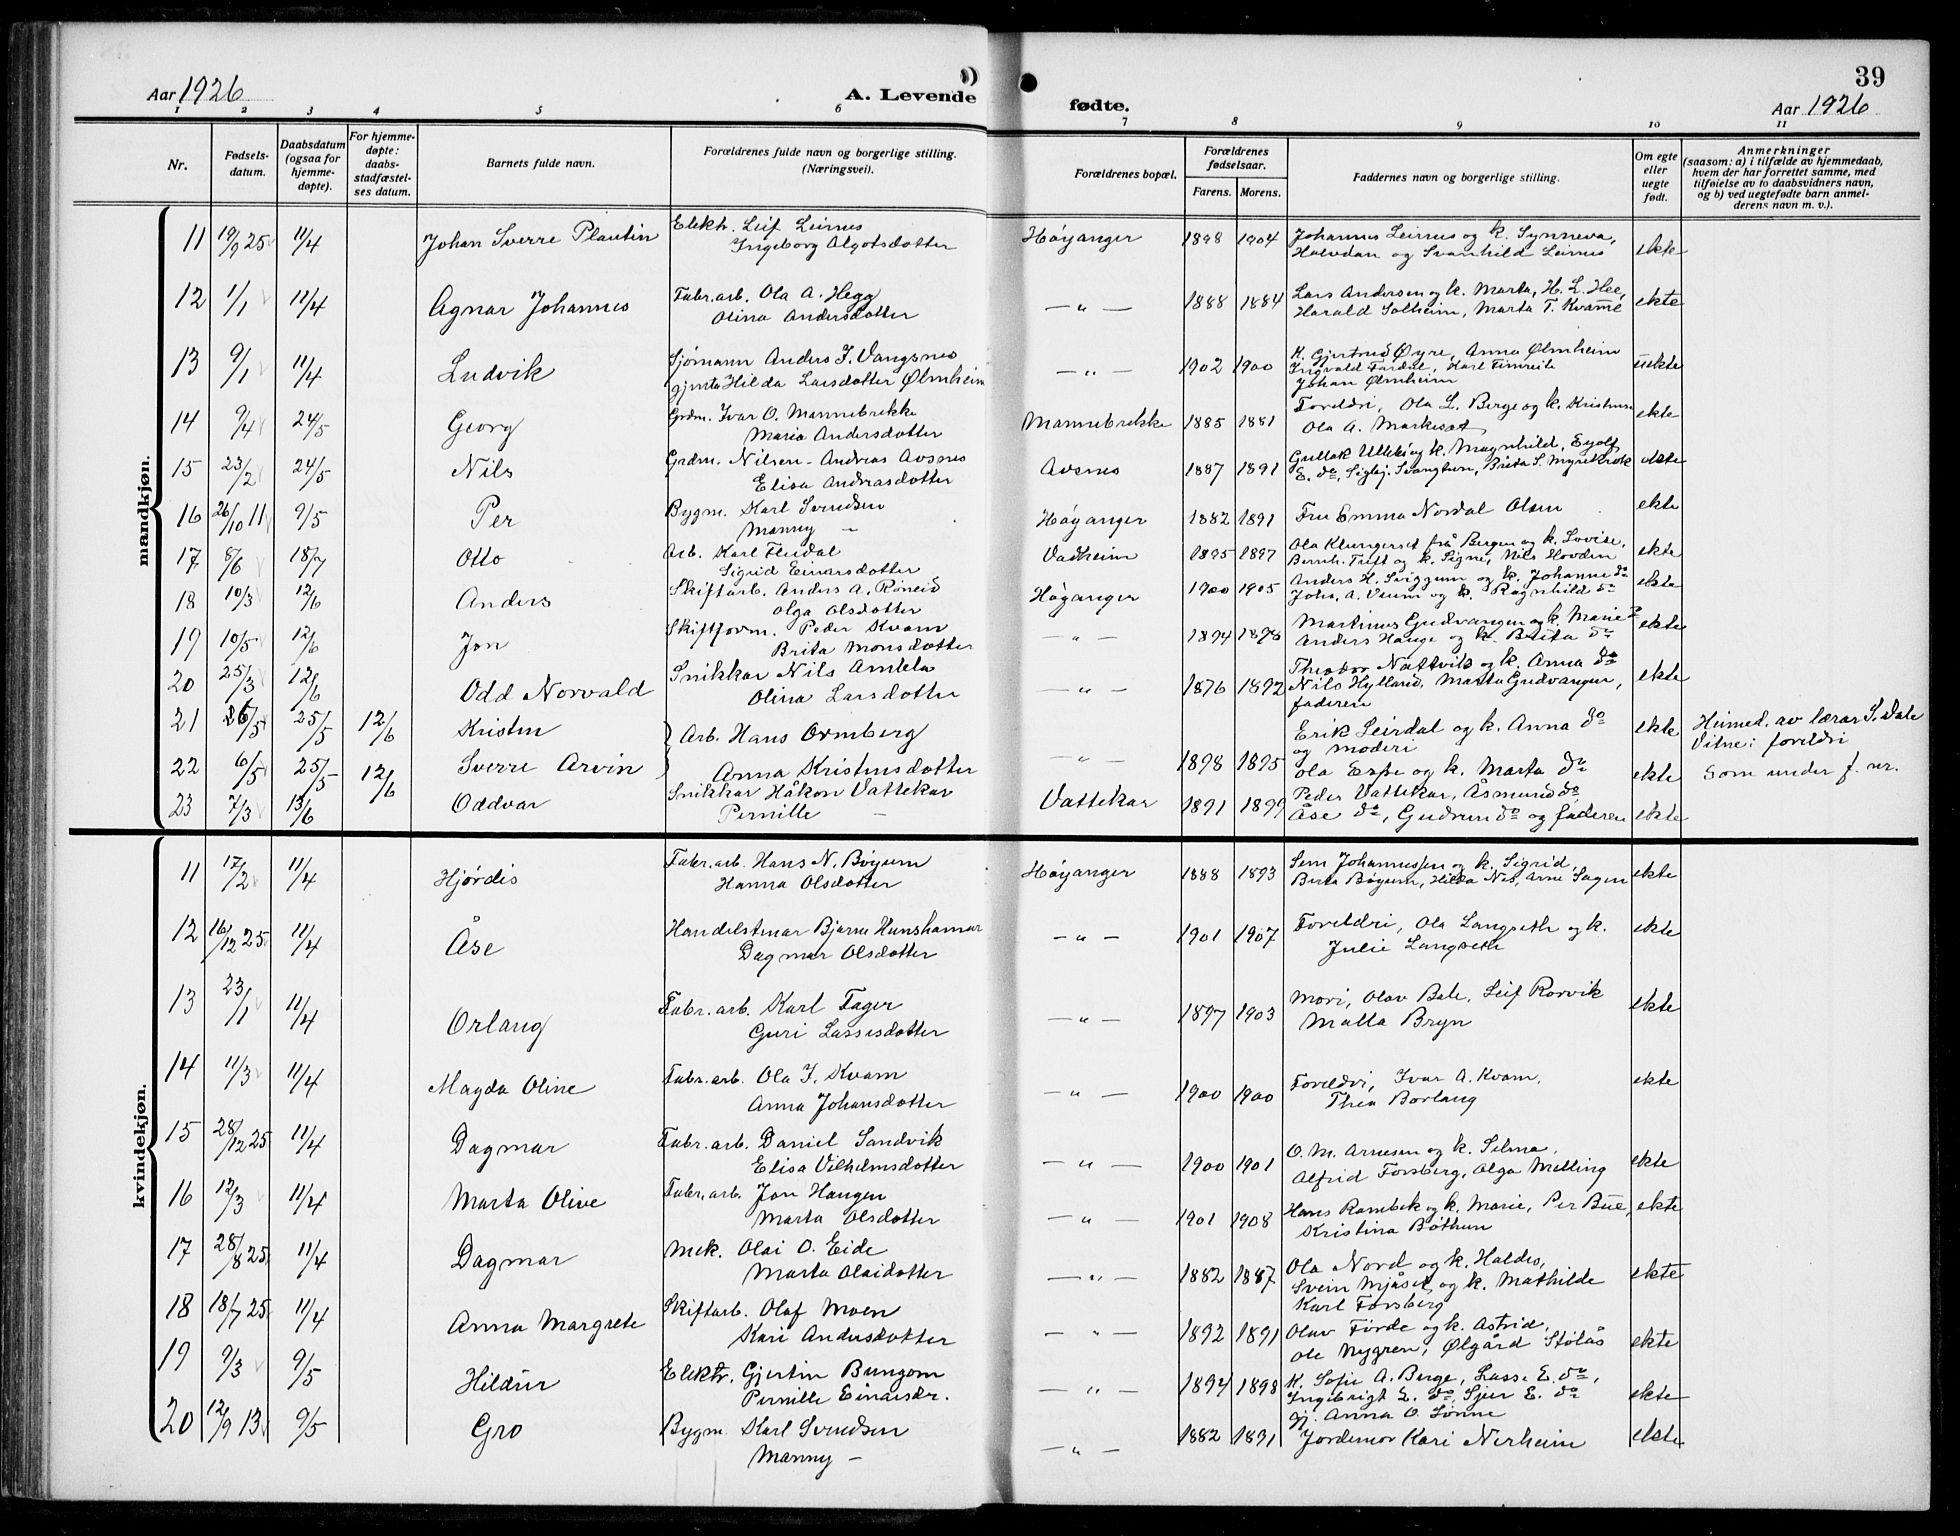 Aar 1926
A. Levende fødte.
39
Aar 1926
1 2 3 4 5 6 7 8 9 10 11
Nr.
Fødsels-
datum.
Daabsdatum
(ogsaa for
hjemme-
døpte).
For hjemme-
døpte:
daabs-
stadfæstel-
ses datum.
Barnets fulde navn.
Forældrenes fulde navn og borgerlige stilling.
(Næringsvei).
Forældrenes bopæl.
Forældrenes
fødselsaar.
Farens. Morens.
Faddernes navn og borgerlige stilling.
Om egte
eller
uegte
født.
Anmerkninger
(saasom: a) i tilfælde av hjemmedaab,
hvem der har forrettet samme, med
tilføielse av to daabsvidners navn,
og b) ved uegtefødte barn anmel-
derens navn m. v.).
mandkjøn.
11 19/9 25 11/4 Johan Sverre Plantin Elektr. Leif Leirnes Høyanger 1898 1904 Johannes Leirnes og k. Synneva, ekte
Ingeborg Algotsdotter Halvdan og Svanhild Leirnes
12 1/1 11/4 Agnar Johannes Fabr.arb. Ola A. Hegg — " — 1888 1884 Lars Andersen og k. Marta, H. L. Hee, ekte
Olina Andersdotter Harald Solheim, Marta T. Kvamme
13 9/1 11/4 Ludvik Sjømann Anders J. Vangsnes — " — 1902 1900 K. Gjertrud Øyre, Anna Ølmheim uekte
gjenta Hilda Larsdotter Ølmheim Ingvald Fardal, Karl Fimreite
Johan Ølmheim
14 9/4 24/5 Georg Grdm. Ivar O. Mannebrekke Mannebrekke 1885 1881 Foreldri, Ola L. Berge og k. Kristense ekte
Maria Andersdotter Ola A. Markeset
15 23/2 24/5 Nils Grdm. Nilsen-Andreas Avsnes Avsnes 1887 1891 Gullak og k. Magnhild, Eyolf ekte
Elisa Andrasdotter E. do, Sigbj. Brita S. Myrekrok
16 26/10 11 9/5 Per Bygm. Karl Svendsen Høyanger 1882 1891 Fru Emma Nordal Olsen ekte
Manny —
17 8/6 18/7 Otto Arb. Karl Flesdal Vadheim 1895 1897 Ola Klungeset frå Bergen og k. Lovise, ekte
Sigrid Einarsdotter Bernh. Treft og k. Signe, Nils Hovden
18 10/3 12/6 Anders Skiftarb. Anders A. Røneid Høyanger 1900 1905 Anders H. Sviggum og k. Johanne do ekte
Olga Olsdotter Johs. A. Veum og k. Ragnhild do
19 10/5 12/6 Jon Skiftform. Peder Kvam — " — 1894 1898 Martinus Gudvangen og k. Marie do ekte
Brita Monsdotter Anders Hauge og k. Brita do
20 25/3 12/6 Odd Norvald Snikkar Nils Amtela — " — 1876 1892 Theodor Nattvik og k. Anna do ekte
Olina Larsdotter Nils Hylland, Marta Gudvangen,
faderen
21 16/5 25/5 12/6 Kristen Arb. Hans Ormberg Erik Leirdal og k. Anna do ekte Heimed. av lærar S. Dale
og moderi Vitne: foreldri
22 6/5 25/5 12/6 Sverre Arvin Anna Kristensdotter — " — 1898 1895 Ola Espe og k. Marta do ekte Som under f. nr.
23 7/3 13/6 Oddvar Snikkar Håkon Vattekar Vattekar 1891 1899 Peder Vattekar, Åsmund do, ekte
Pernille — Åse do, Gudrun do og faderen
kvindekjøn.
11 17/2 11/4 Hjørdis Fabr.arb. Hans N. Bøyum Høyanger 1888 1893 Sem Johannessen og k. Sigrid, ekte
Hanna Olsdotter Berta Bøyum, Hilda Nes, Arne Sagen
12 16/12 25 11/4 Åse Handelsmar Bjarne Hunshamar — " — 1901 1907 Foreldri, Ola Langseth og k. ekte
Dagmar Olsdotter Julie Langseth
13 23/1 11/4 Orlaug Fabr. arb. Karl Fager — " — 1897 1903 Mori, Olav Bale, Leif Rorvik ekte
Guri Lassesdotter Malla Bryn
14 11/3 11/4 Magda Oline Fabr. arb. Ola J. Kvam — " — 1900 1900 Foreldri, Ivar A. Kvam, ekte
Anna Johansdotter Thea Borlaug
15 28/12 25 11/4 Dagmar Fabr. arb. Daniel Sandvik — " — 1900 1901 O. M. Arnesen og k. Selma, ekte
Elisa Vilhelmsdotter Alfrid Forsberg, Olga Melling
16 12/3 11/4 Marta Olive Fabr. arb. Jon Haugen — " — 1901 1908 Hans Rambek og k. Marie, Per Bue, ekte
Marta Olsdotter Kristina Bøthun
17 28/8 25 11/4 Dagmar Mek. Olai O. Eide — " — 1882 1887 Ola Nord og k. Haldes, ekte
Marta Olaidotter Svein Mjåset og k. Mathilde
Karl Forsberg
18 18/7 25 11/4 Anna Margrete Skiftarb. Olaf Moen — " — 1892 1891 Olav Førde og k. Astrid, ekte
Kari Andersdotter Ole Nygren, Ølgård Stølås
19 9/3 9/5 Hildur Elektr. Gjertin Bungom — " — 1894 1898 K. Sofie A. Berge, Lasse E. do, ekte
Pernille Einarsdr. Ingebrigt E. do, Sjur E. do
gj. Anna O. Sønne
20 12/9 13 9/5 Gro Bygm. Karl Svendsen — " — 1882 1891 Jordemor Kari Nerheim ekte
Manny —